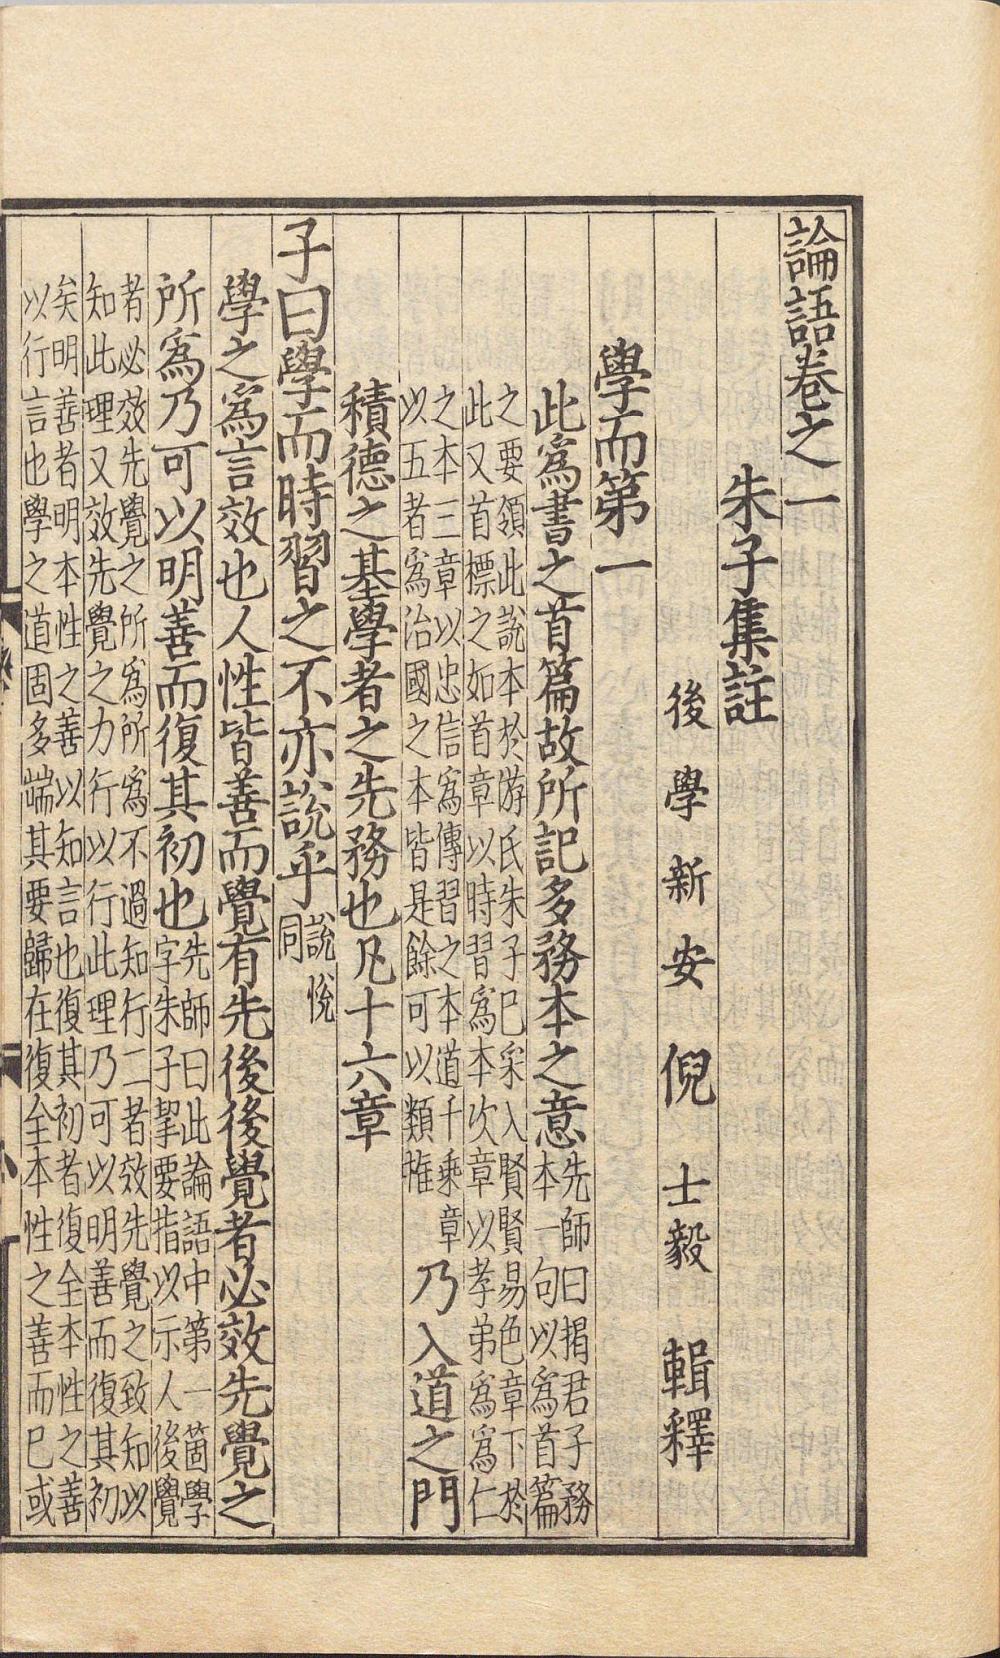 論語卷之一
朱子集註
後學新安倪士毅輯釋
學而第一
此為書之首篇故所記多務本之意
先師曰揭君子務
本一句以為首篇
之要領此說本於游氏朱子已采入賢賢易色章下於
此又首標之如首章以時習為本次章以孝弟為為仁
之本三章以忠信為傳習之本道千乘章
以五者為治國之本皆是餘可以類推
乃入道之門
積德之基學者之先務也凡十六章
子曰學而時習之不亦說乎
說悅
同
學之為言效也人性皆善而覺有先後後覺者必效先覺之
所為乃可以明善而復其初也
先師曰此論語中第一箇學
字朱子挈要指以示人後覺
者必效先覺之所為所為不過知行二者效先覺之致知以
知此理又效先覺之力行以行此理乃可以明善而復其初
矣明善者明本性之善以知言也復其初者復全本性之善
以行言也學之道固多端其要歸在復全本性之善而已或